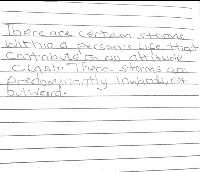 There are certain storms
within a person's life that
contribute to an attitude
clash. These storms are
predominantly inwards, not
outward.